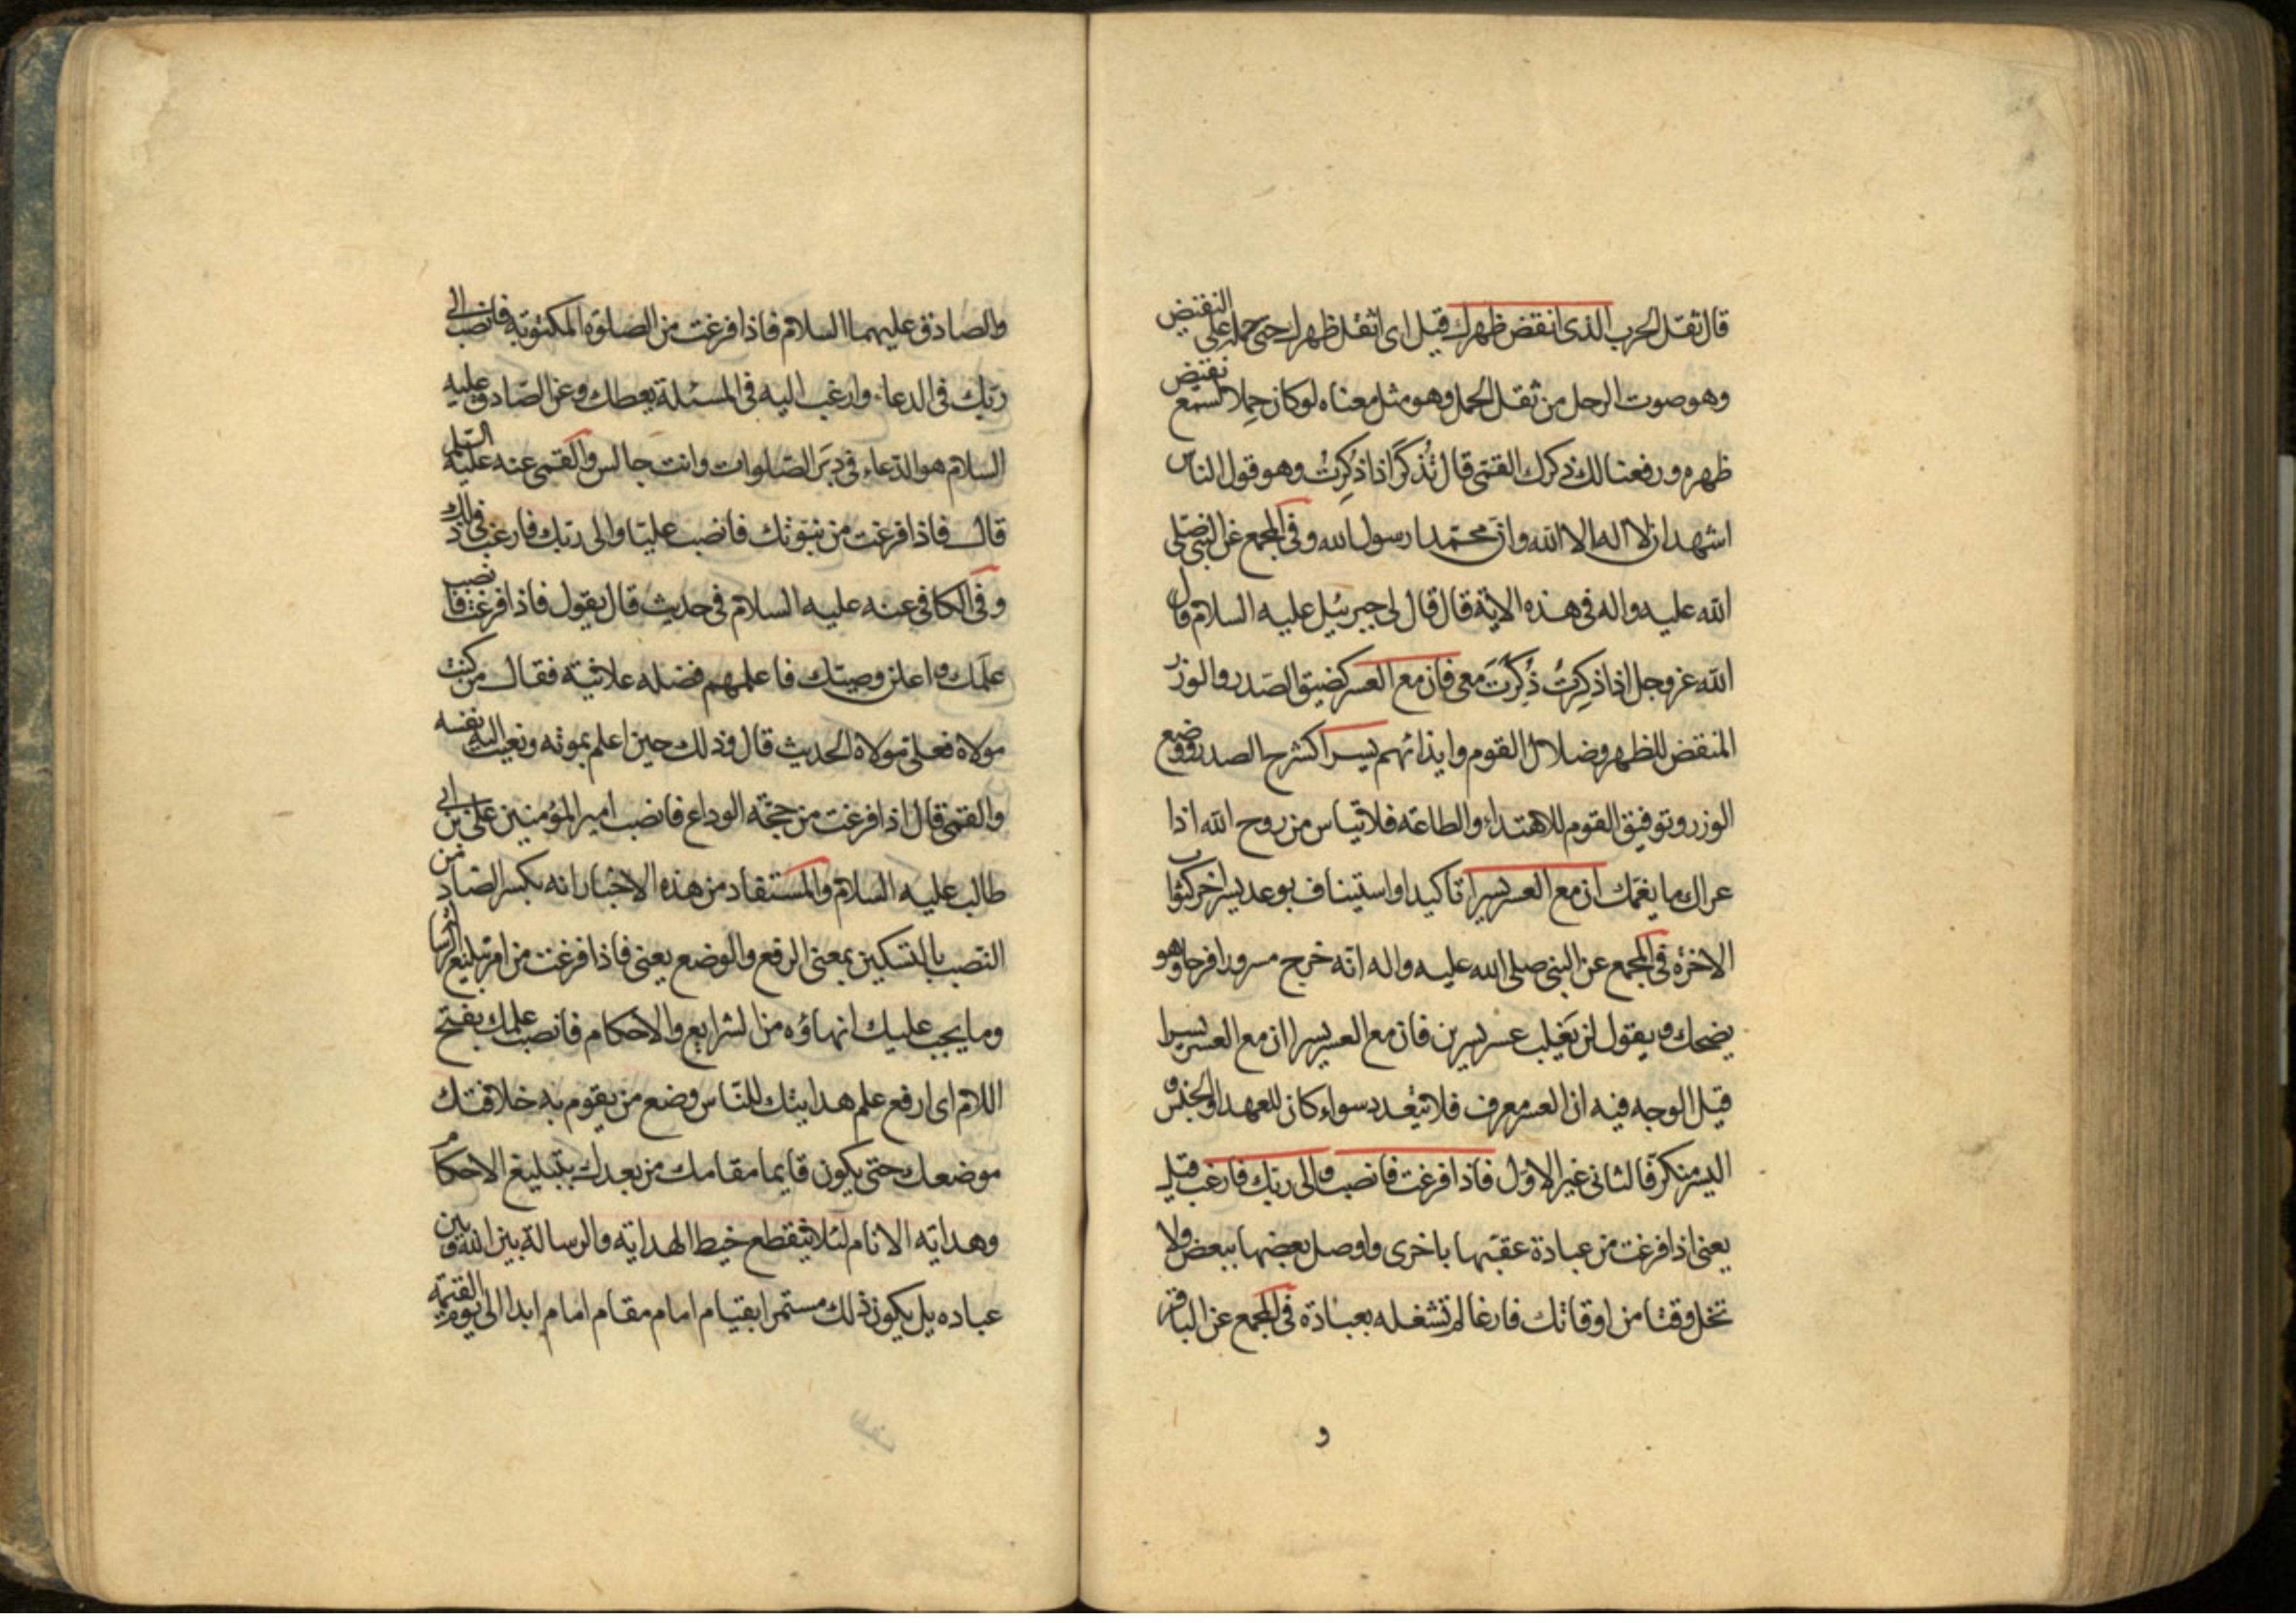 قال ثقل الحرب الذى انقض ظهرك قيل اى اثقل ظهرك حتى حمله على النقيض
وهو صوت الرحل من ثقل الحمل وهو مثل معناه لو كان حملا لسمع نقيض
ظهره ورفعنا لك ذكرك القمى قال تُذكَرُ اذا ذُكِرتُ وهو قول الناس
اشهد ان لا اله الا الله وان محمدا رسول الله وفى المجمع عن النبى صلى
الله عليه واله فى هذه الاية قال قال لى جبرئيل عليه السلام قال
الله عز وجل اذا ذُكِرتُ ذُكِرْتَ معى فان مع العسر كضيق الصدر والوزر
المنقض للظهر وضلال القوم وايذائهم يسرا كشرح الصدر ووضع
الوزر وتوفيق القوم للاهتداء والطاعة فلا تياس من روح الله اذا
عراك ما يغمك ان مع العسر يسرا تاكيد او استيناف بوعد يسر اخر كثواب
الاخرة فى المجمع عن النبى صلى الله عليه واله انه خرج مسرورا فرحا وهو
يضحك ويقول لن يَغلِب عسر يسرين فان مع العسر يسرا ان مع العسر يسرا
قيل الوجه فيه ان العسر معرف فلا يتعدد سواء كان للعهد او الجنس و
اليسر منكر فالثانى غير الاول فاذا فرغت فانصب والى ربك فارغب قيل
يعنى اذا فرغت من عبادة عقبها باخرى واوصل بعضها ببعض ولا
تخل وقتا من اوقاتك فارغا لم تشغله بعبادة فى المجمع عن الباقر
و
والصادق عليهما السلام فاذا فرغت من الصلوة المكتوبة فانصب الى
ربك فى الدعاء وارغب اليه فى المسئلة يعطك وعن الصادق عليه
السلام هو الدعاء فى دبر الصلوات وانت جالس والقمى عنه عليه السلم
قال فاذا فرغت من نبوتك فانصب عليّا والى ربك فارغب فى ذلك
وفى الكافى عنه عليه السلام فى حديث قال يقول فاذا فرغت فانصب
علمَك واعلن وصيتك فاعلمهم فضله علانية فقال من كنت
مولاه فعلى مولاه الحديث قال وذلك حين اعلم بموته ونعيت اليه نفسه
والقمى قال اذا فرغت من حجة الوداع فانصب امير المؤمنين على بن ابى
طالب عليه السلام والمستفاد من هذه الاخبار انه بكسر الصاد من
النصب بالتسكين بمعنى الرفع والوضع يعنى فاذا فرغت من امر تبليغ الرسالة
وما يجب عليك انهاؤه من الشرايع والاحكام فانصب علمك بفتح
اللام اى ارفع علم هدايتك للناس وضع من يقوم به خلافتك
موضعك حتى يكون قايما مقامك من بعدك بتبليغ الاحكام
وهداية الانام لئلا ينقطع خيط الهداية والرسالة بين الله وبين
عباده بل يكون ذلك مستمرا بقيام امام مقام امام ابدا الى يوم القيمة